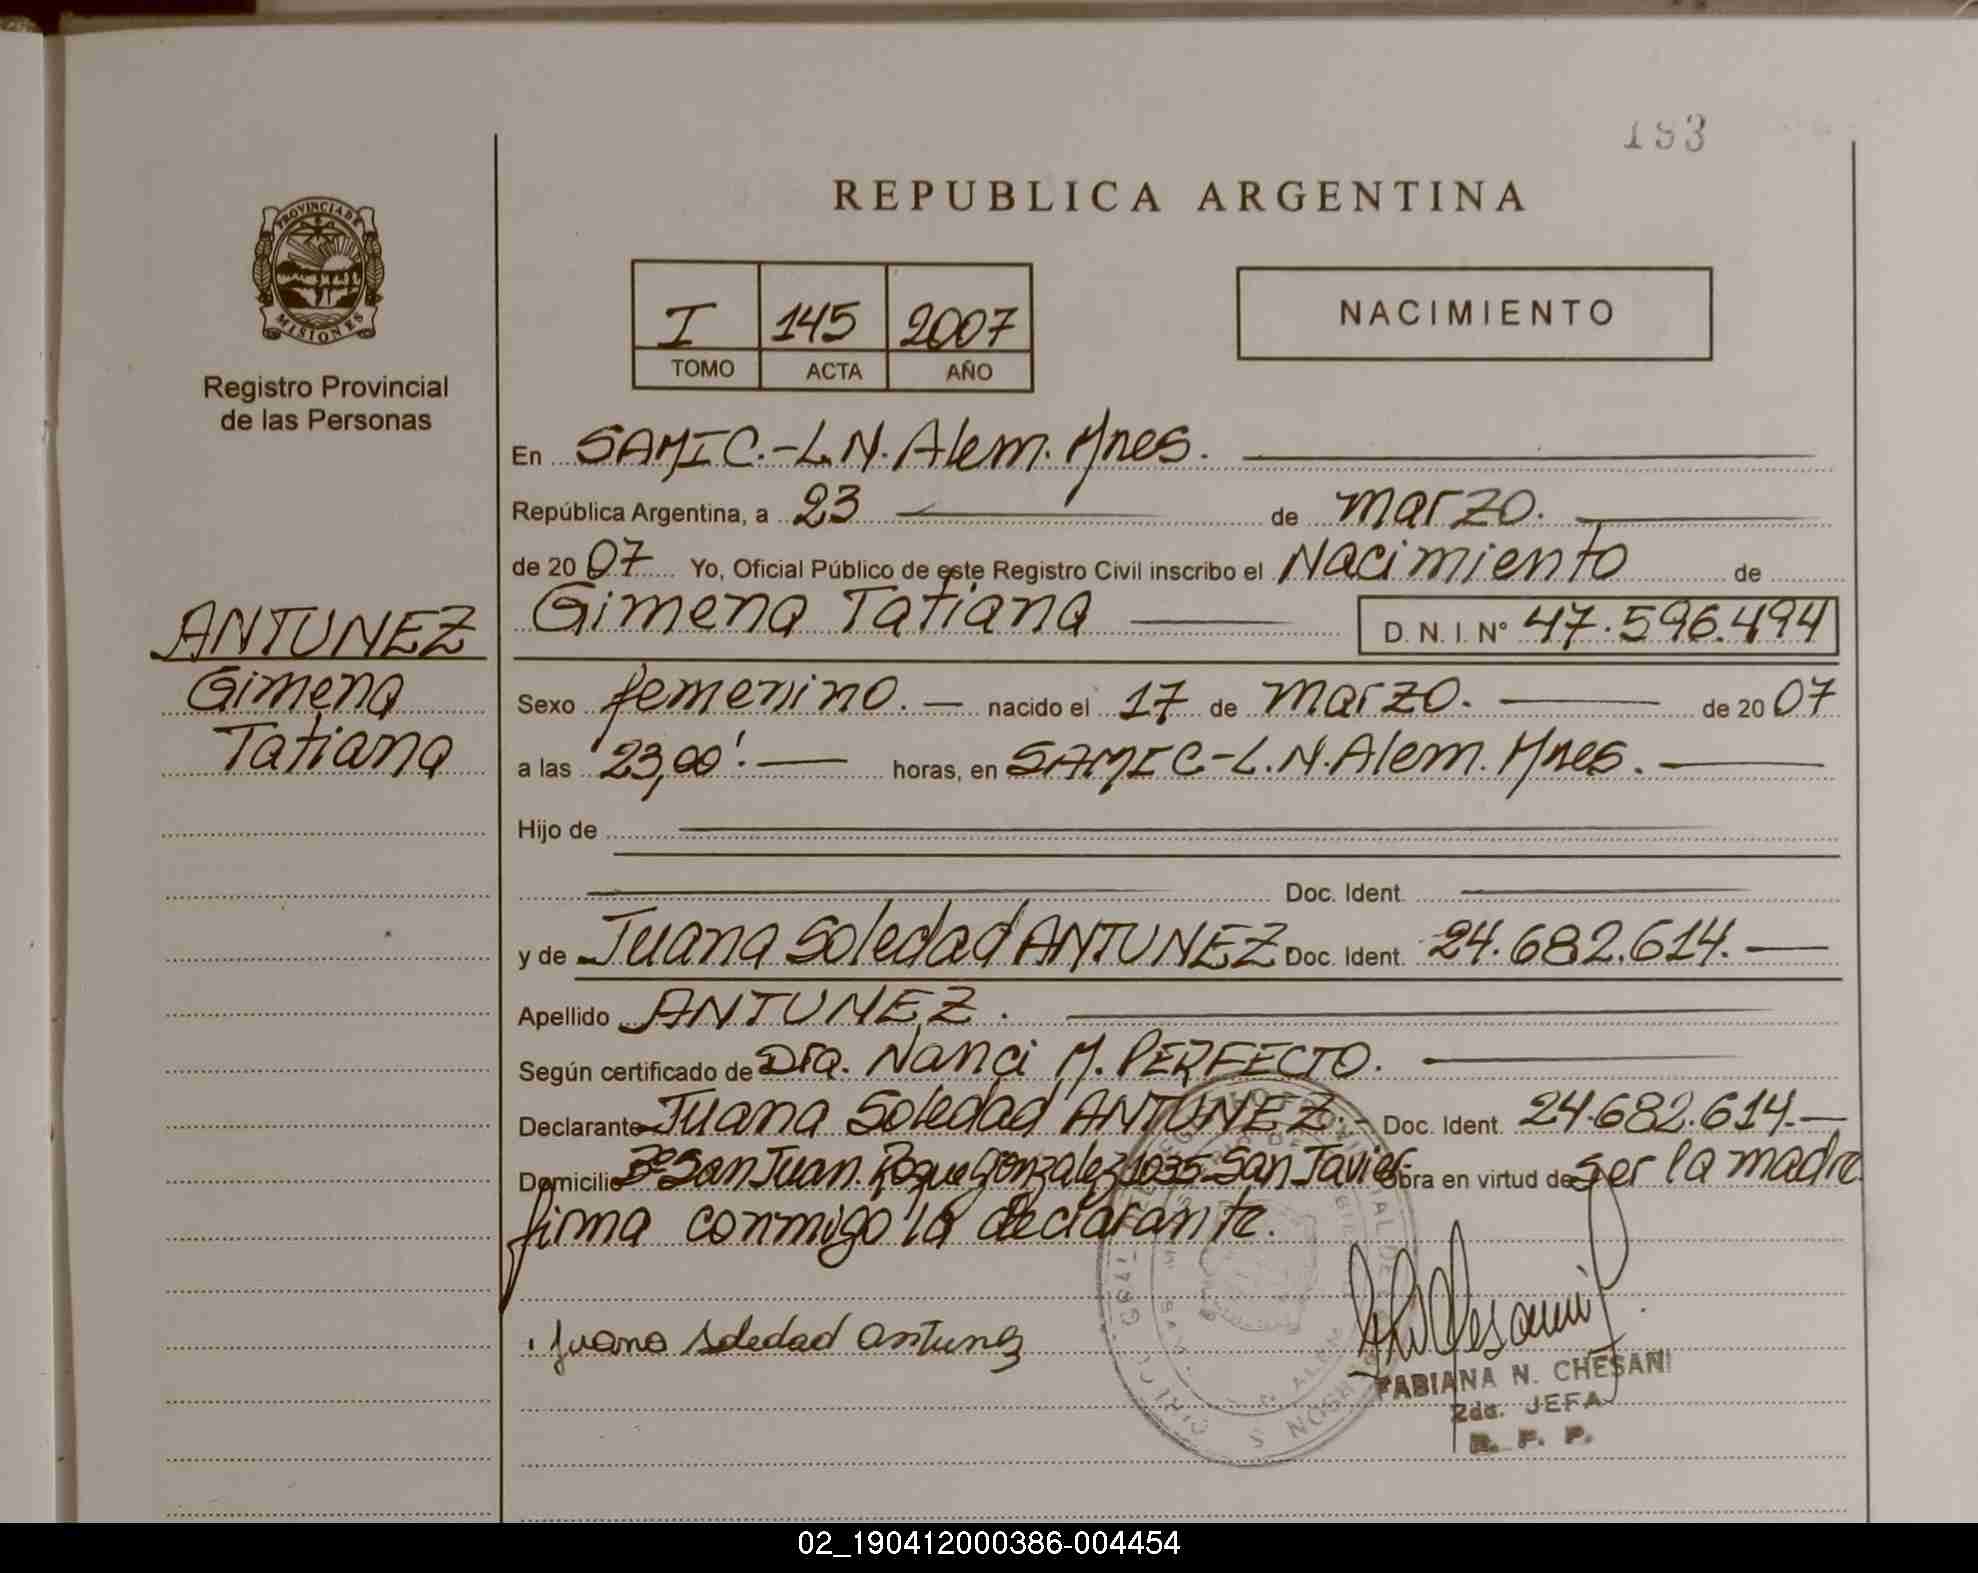 193
REPUBLICA ARGENTINA
PROVINCIA DE
MISIONES
Registro Provincial
de las Personas
I 145 2007
TOMO ACTA AÑO
NACIMIENTO
En SAMIC.-L.N. Alem. Mnes.
República Argentina, a 23 de marzo.
de 2007 Yo, Oficial Público de este Registro Civil inscribo el Nacimiento de
Gimena Tatiana D. N. I. N° 47.596.494
ANTUNEZ
Gimena
Tatiana
Sexo femenino. nacido el 17 de marzo. de 2007
a las 23,00'. horas, en SAMIC-L.N. Alem. Mnes.
Hijo de
Doc. Ident.
y de Juana Soledad ANTUNEZ Doc. Ident. 24.682.614.
Apellido ANTUNEZ.
Según certificado de Dra. Nanci M. PERFECTO.
Declarante Juana Soledad ANTUNEZ.- Doc. Ident. 24.682.614.
Domicilio Bº San Juan. Roque Gonzalez 1035 San Javier. Obra en virtud de ser la madre
firma conmigo la declarante.
Juana Soledad Antunez
FABIANA N. CHESANI
2da. JEFA
R. P. P.
02_190412000386-004454